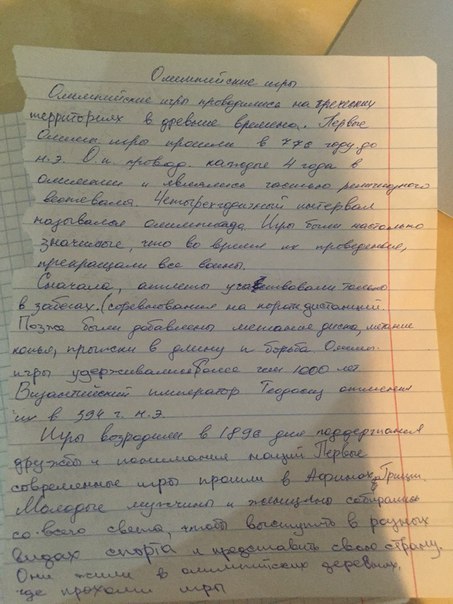 Олимпийские игры
Олимпийские игры проводились на греческих
территориях в древние времена. Первые
Олимп. игры прошли в 776 году до
н.э. Они провод. каждые 4 года в
олимпии и являлись частью религиозного
фестиваля. Четырёхгодичный интервал
назывался олимпиада. Игры были настолько
значимые, что во время их проведение,
прекращали все войны.
Сначала, атлеты участвовали только
в забегах. (соревнования на коротк дистанций.
Позже были добавлены метание диска, метание
копья, прыжки в длину и борьба Олимп.
игры удерживались более чем 1000 лет.
Византийский император Теодосий отменил
их в 394 г. н.э.
Игры возродили в 1896 для поддержания
дружбы и понимания наций Первые
современные игры прошли в Афинах, Греции.
Молодые мужчины и женщины собирались
со всего света, чтобы выступить в разных
видах спорта и представить свою страну.
Они жили в олимпийских деревнях,
где проходили игры